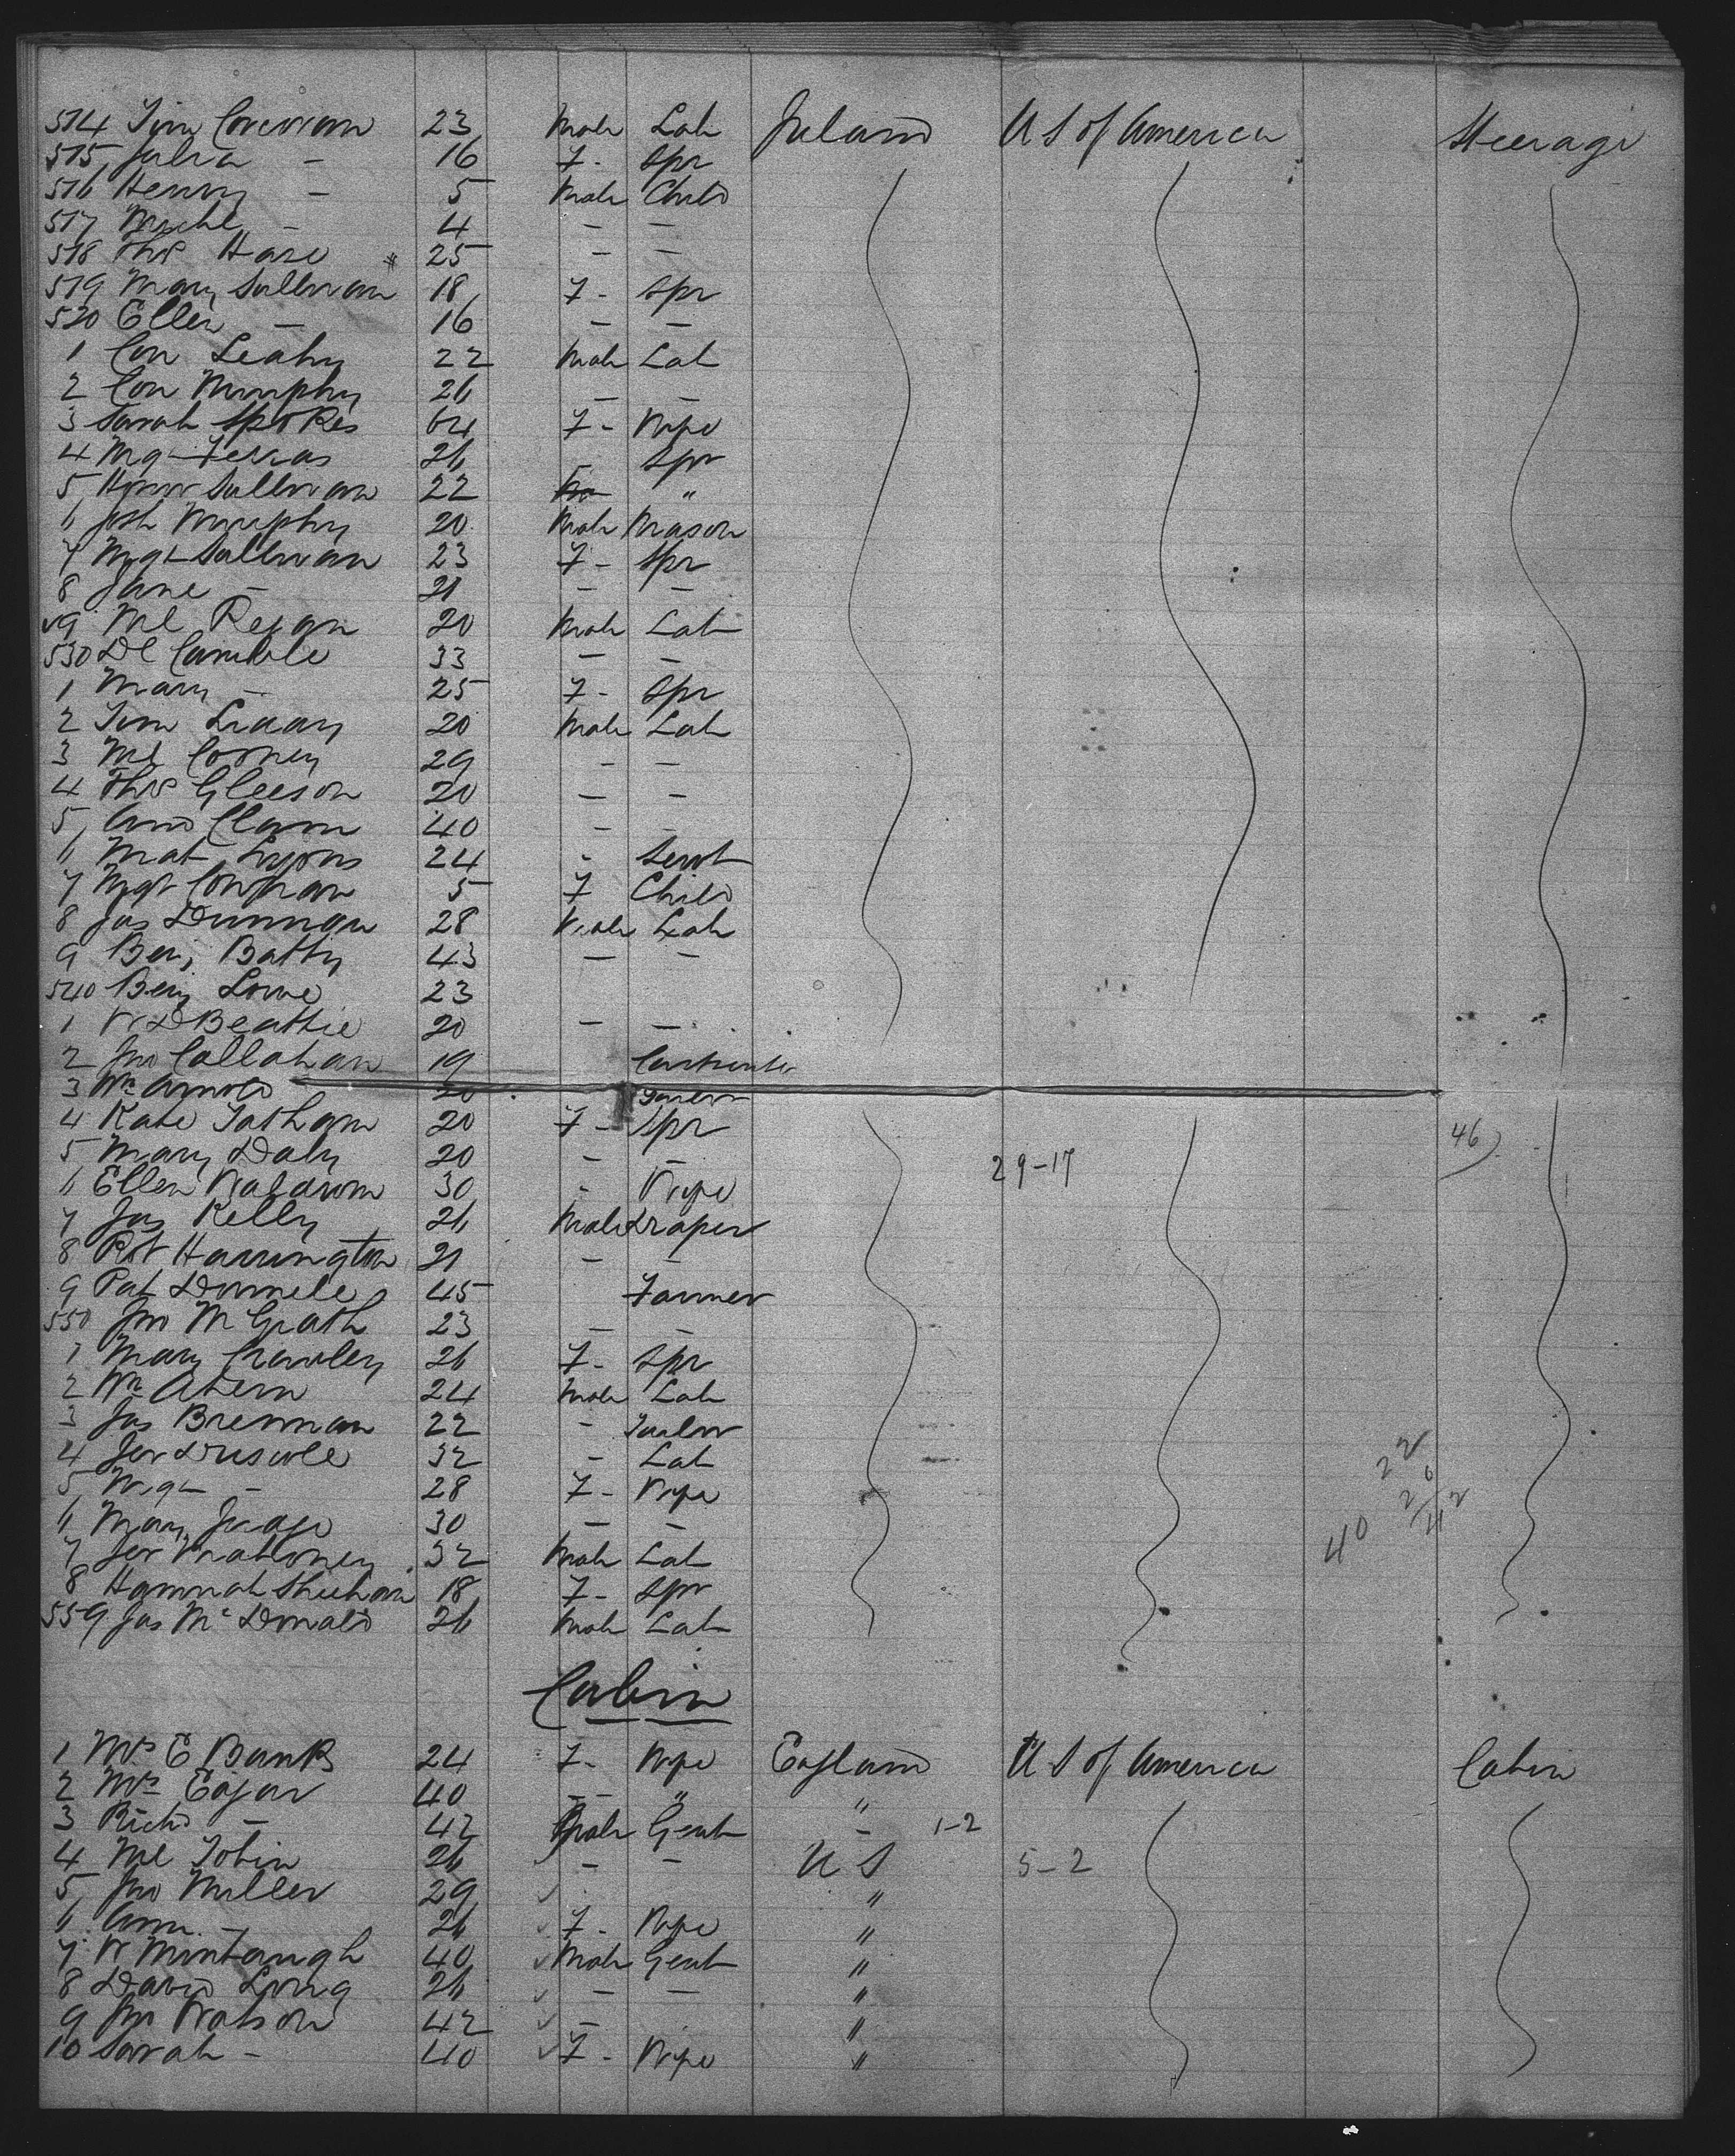 514 Tim Corcoran 23 Male Lab Ireland U S of America Steerage
515 Julia - 16 F- Spr
516 Henry - 5 Male Child
517 Michl - 4 - -
518 Thos Hase 25 - -
519 Mary Sullivan 18 F- Spr
520 Ellen - 16 - -
1 Con Leahy 22 Male Lab
2 Con Murphy 26 - -
3 Sarah Spokes 64 F- Wife
4 Mgt 26 - Spr
5 Sullivan 22 "
6 Jph Murphy 20 Male Mason
7 Mgt Sullivan 23 F- Spr
8 Jane - 21 - -
9 Ml Regan 20 Male Lab
530 Dl 33 - -
1 Mary - 25 F- Spr
2 Tim Liddy 20 Male Lab
3 Ml Cooney 29 - -
4 Thos Gleeson 20 - -
5 And 40 - -
6 Mat Lyons 24 - Servt
7 Mgt 5 F Child
8 Jas 28 Male Lab
9 Benj Batty 43 - -
540 Benj Lowe 23
1 W D Beattie 20 - -
2 Jno Callahan 19 Carpenter
3 Wm Arnold 20
4 Kate Tatham 20 F- Spr 46
5 Mary Daly 20 - - 29-17
6 Ellen Waldron 30 - Wife
7 Jas Kelly 26 Male Draper
8 Rt Harrington 21 - -
9 Pat 45 Farmer
550 Jno McGrath 23 - -
1 Mary Crowley 26 F- Spr
2 Wm Ahern 24 Male Lab
3 Jas Brennan 22 - Tailor
4 Jer Driscoll 32 - Lab
5 Mgt - 28 F- Wife
6 Mary 30 - -
7 Jer Mahoney 32 Male Lab 40
8 Hannah Sheehan 18 F- Spr
559 Jas McDonald 26 Male Lab
Cabin
1 Mrs E Banks 24 F- Wife England U S of America Cabin
2 Mrs Edgar 40 - - " "
3 Richd - 42 Male Gent - 1-2
4 Ml Tobin 26 - - U S 5-2
5 Jno Miller 29 "
6 Ann - 26 F- Wife "
7 W Murtaugh 40 Male Gent "
8 David Long 26 - - "
9 Jno Watson 42 - "
10 Sarah - 40 F- Wife "